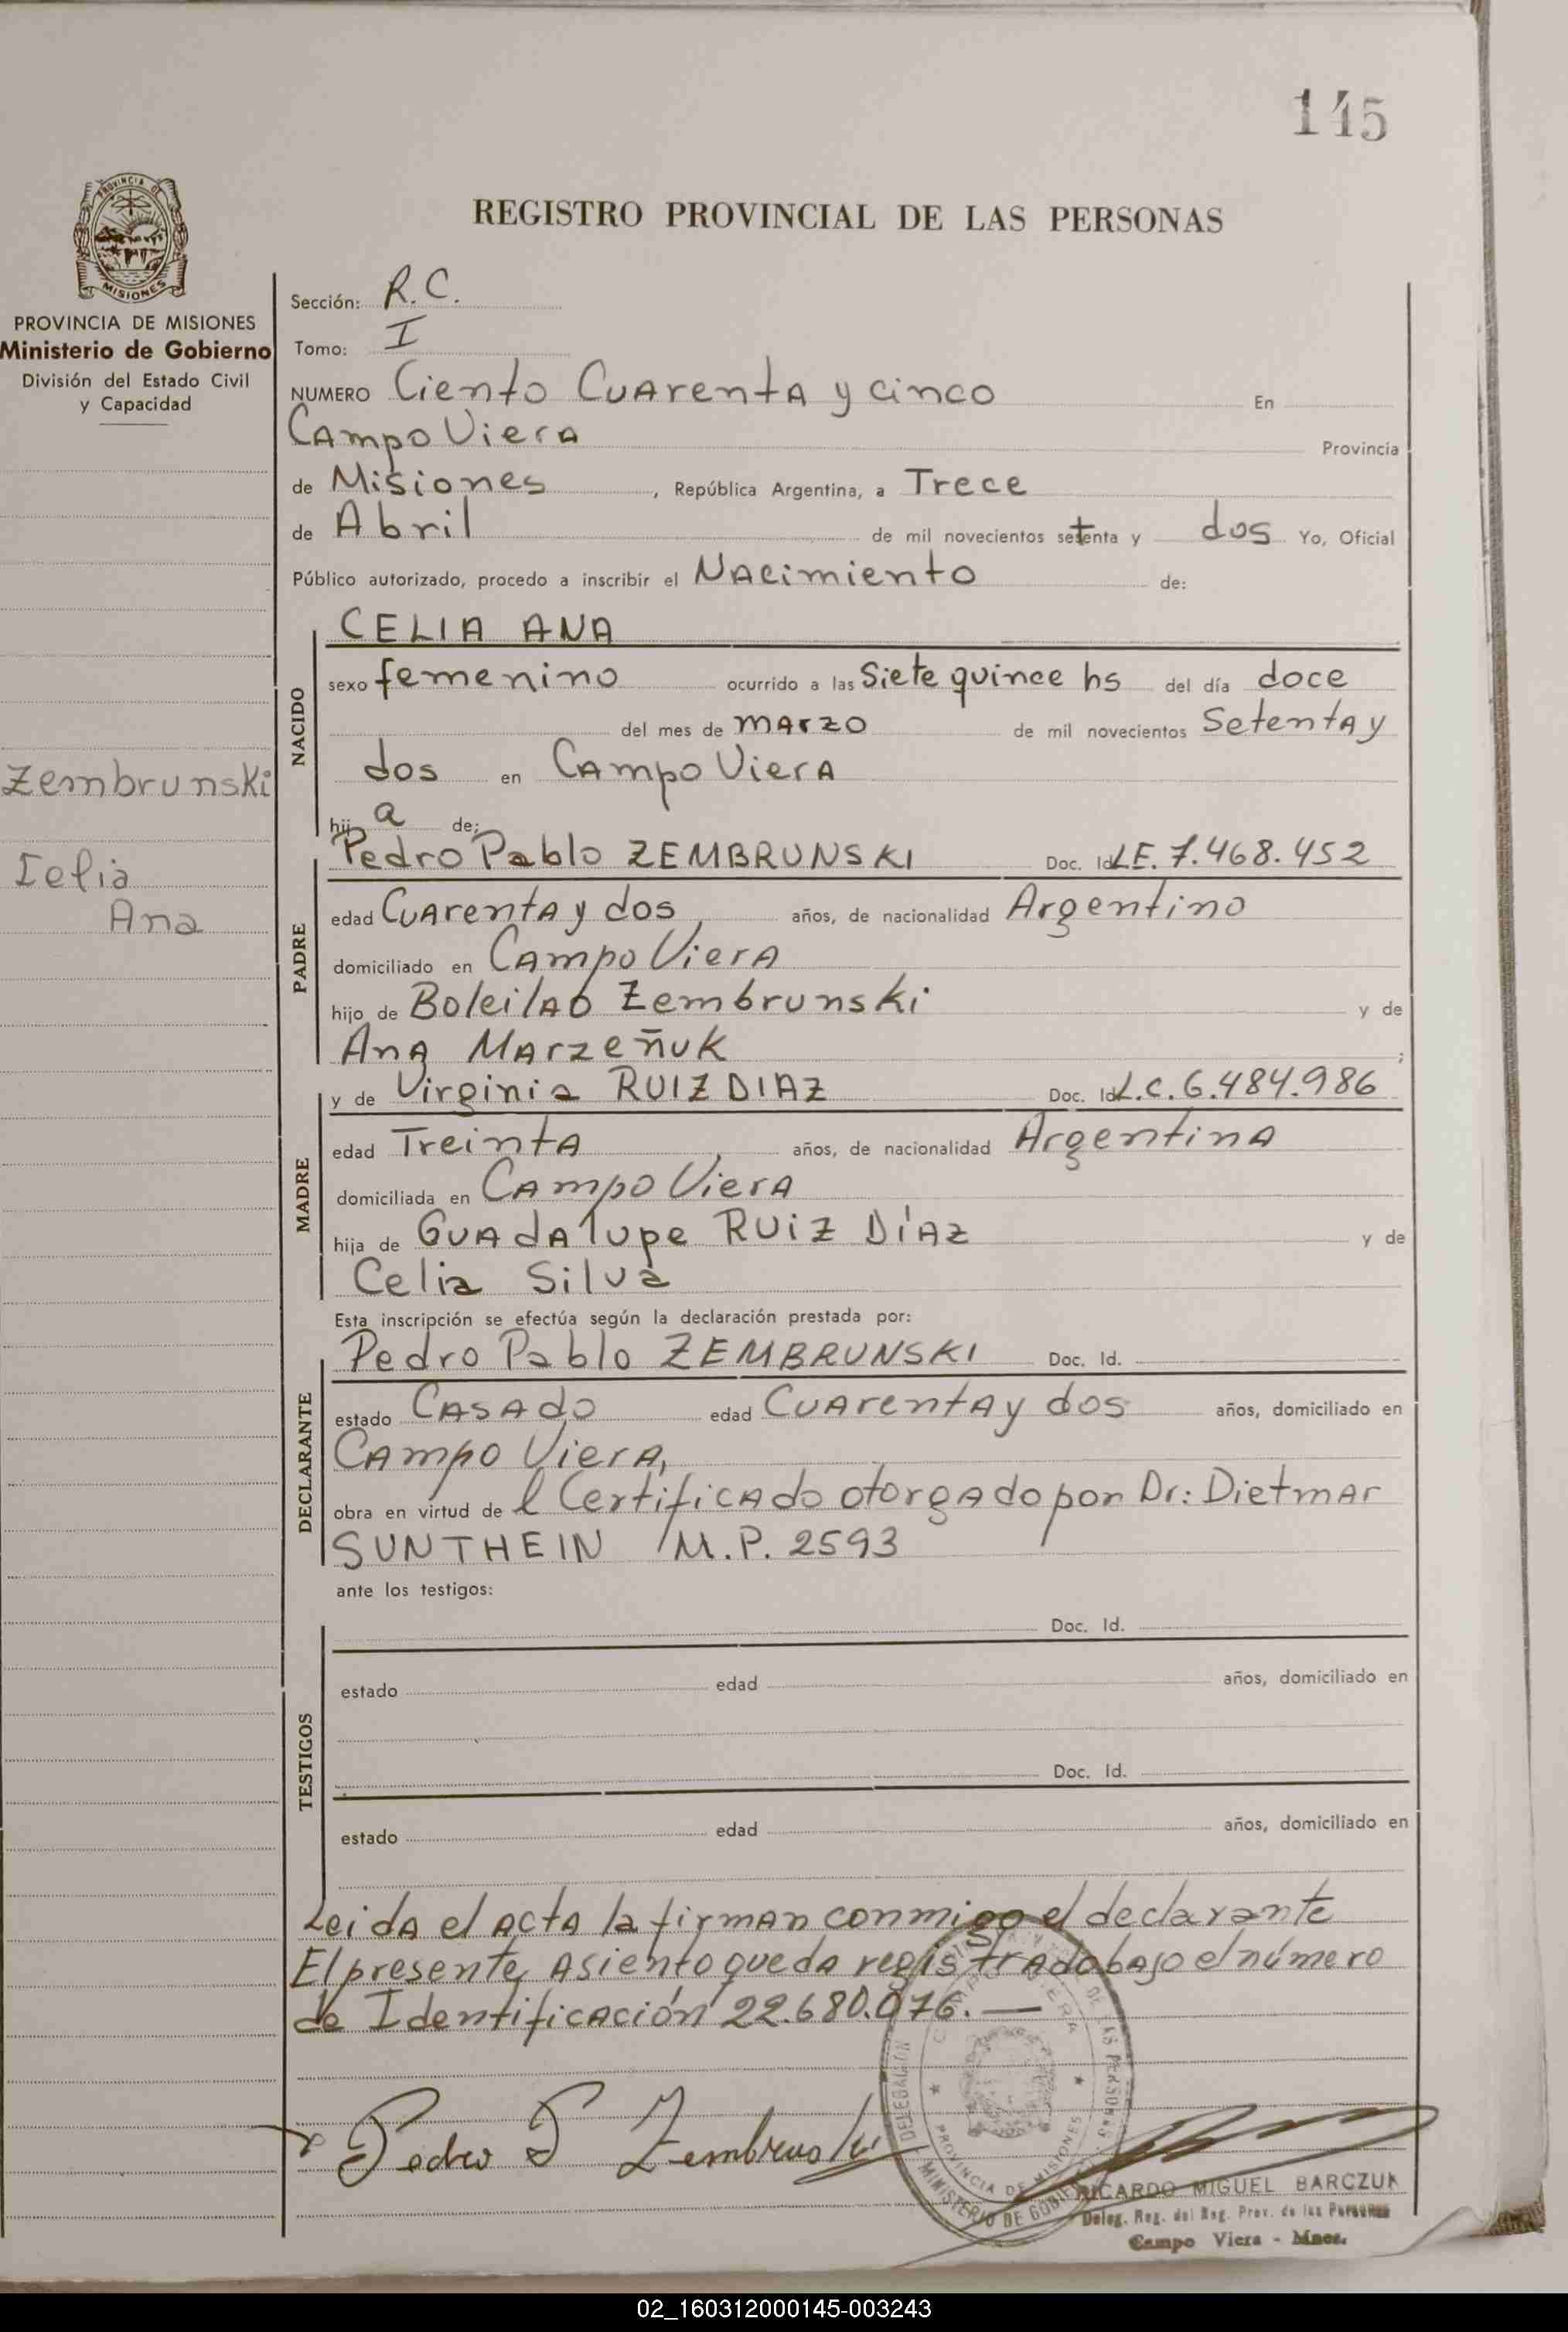 145
REGISTRO PROVINCIAL DE LAS PERSONAS
PROVINCIA DE
MISIONES
PROVINCIA DE MISIONES
Ministerio de Gobierno
División del Estado Civil
y Capacidad
Zembrunski
Celia
Ana
Sección: R.C.
Tomo: I
NUMERO Ciento Cuarenta y cinco En
Campo Viera Provincia
de Misiones, República Argentina, a Trece
de Abril de mil novecientos setenta y dos Yo, Oficial
Público autorizado, procedo a inscribir el Nacimiento de:
NACIDO
CELIA ANA
sexo femenino ocurrido a las Siete quince hs del día doce
del mes de marzo de mil novecientos Setenta y
dos en Campo Viera
hij a de:
PADRE
Pedro Pablo ZEMBRUNSKI Doc. Id. L.E. 7.468.452
edad Cuarenta y dos, años, de nacionalidad Argentino
domiciliado en Campo Viera
hijo de Boleilao Zembrunski y de
Ana Marzeñuk ;
MADRE
y de Virginia RUIZ DIAZ Doc. Id. L.C. 6.484.986
edad Treinta, años, de nacionalidad Argentina
domiciliada en Campo Viera
hija de Guadalupe RUIZ DÍAZ y de
Celia Silva
Esta inscripción se efectúa según la declaración prestada por:
DECLARANTE
Pedro Pablo ZEMBRUNSKI Doc. Id.
estado Casado edad Cuarenta y dos años, domiciliado en
Campo Viera,
obra en virtud de l Certificado otorgado por Dr: Dietmar
SUNTHEIN M.P. 2593
ante los testigos:
TESTIGOS
Doc. Id.
estado edad años, domiciliado en
Doc. Id.
estado edad años, domiciliado en
Leida el acta la firman conmigo el declarante
El presente asiento queda registrado bajo el número
de Identificación 22.680.076.—
Pedro P Zembrunski
DELEGACIÓN DE LAS PERSONAS
PROVINCIA DE MISIONES
MINISTERIO DE GOBIERNO
RICARDO MIGUEL BARCZUK
Deleg. Reg. del Reg. Prov. de las Personas
Campo Viera - Mnes.
02_160312000145-003243